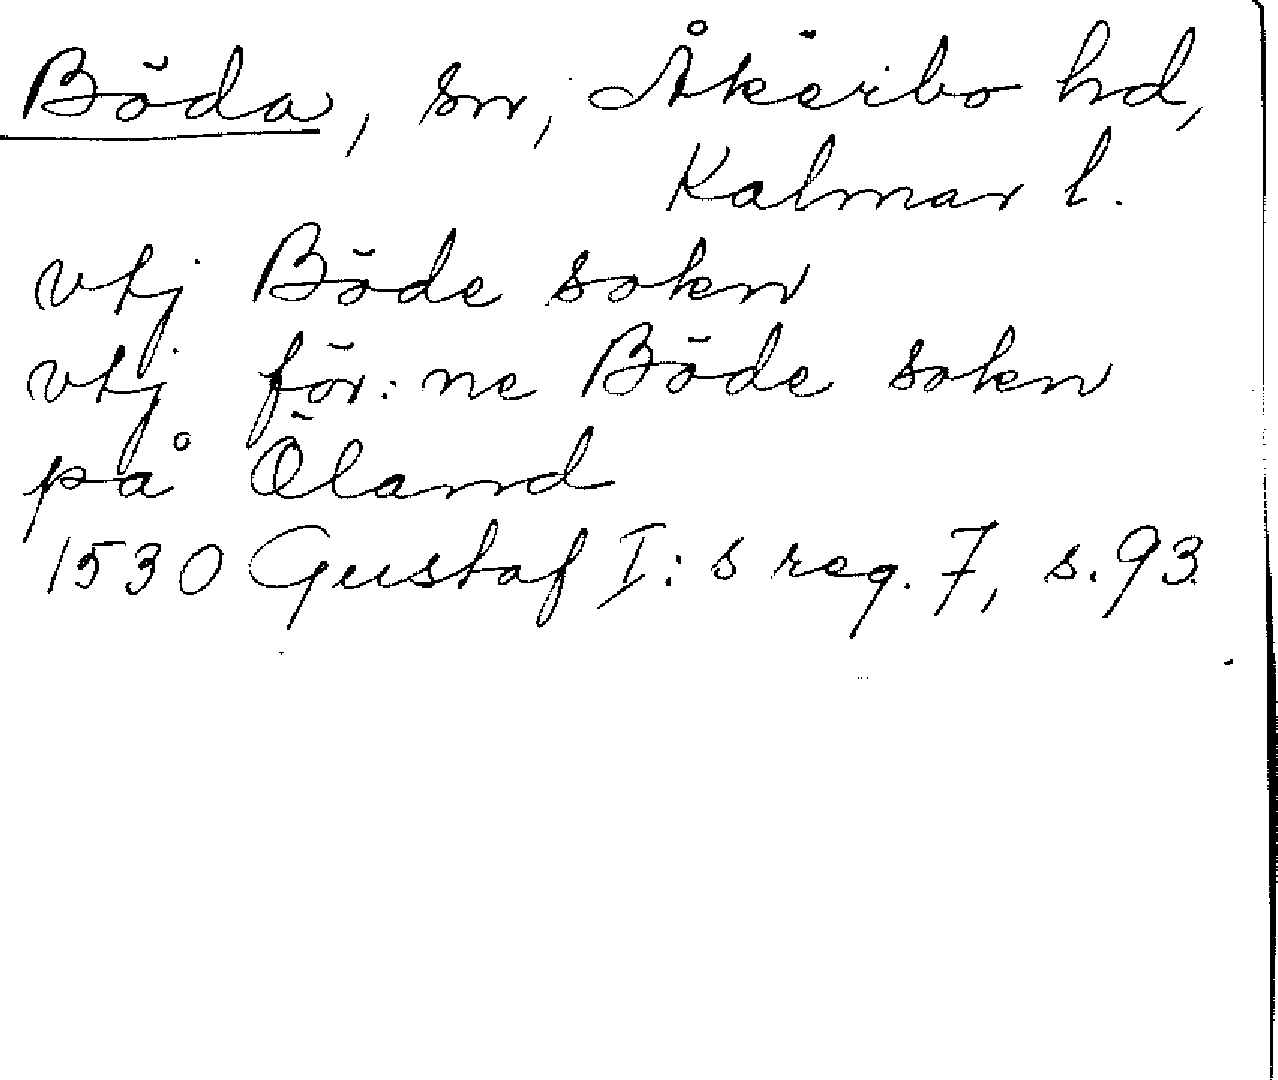 Böda, sn, Åkerbo hd,
Kalmar l.
vtj Böde sokn
vtj för:ne Böde sokn
på Öland
1530 Gustaf I:s reg. 7, s. 93